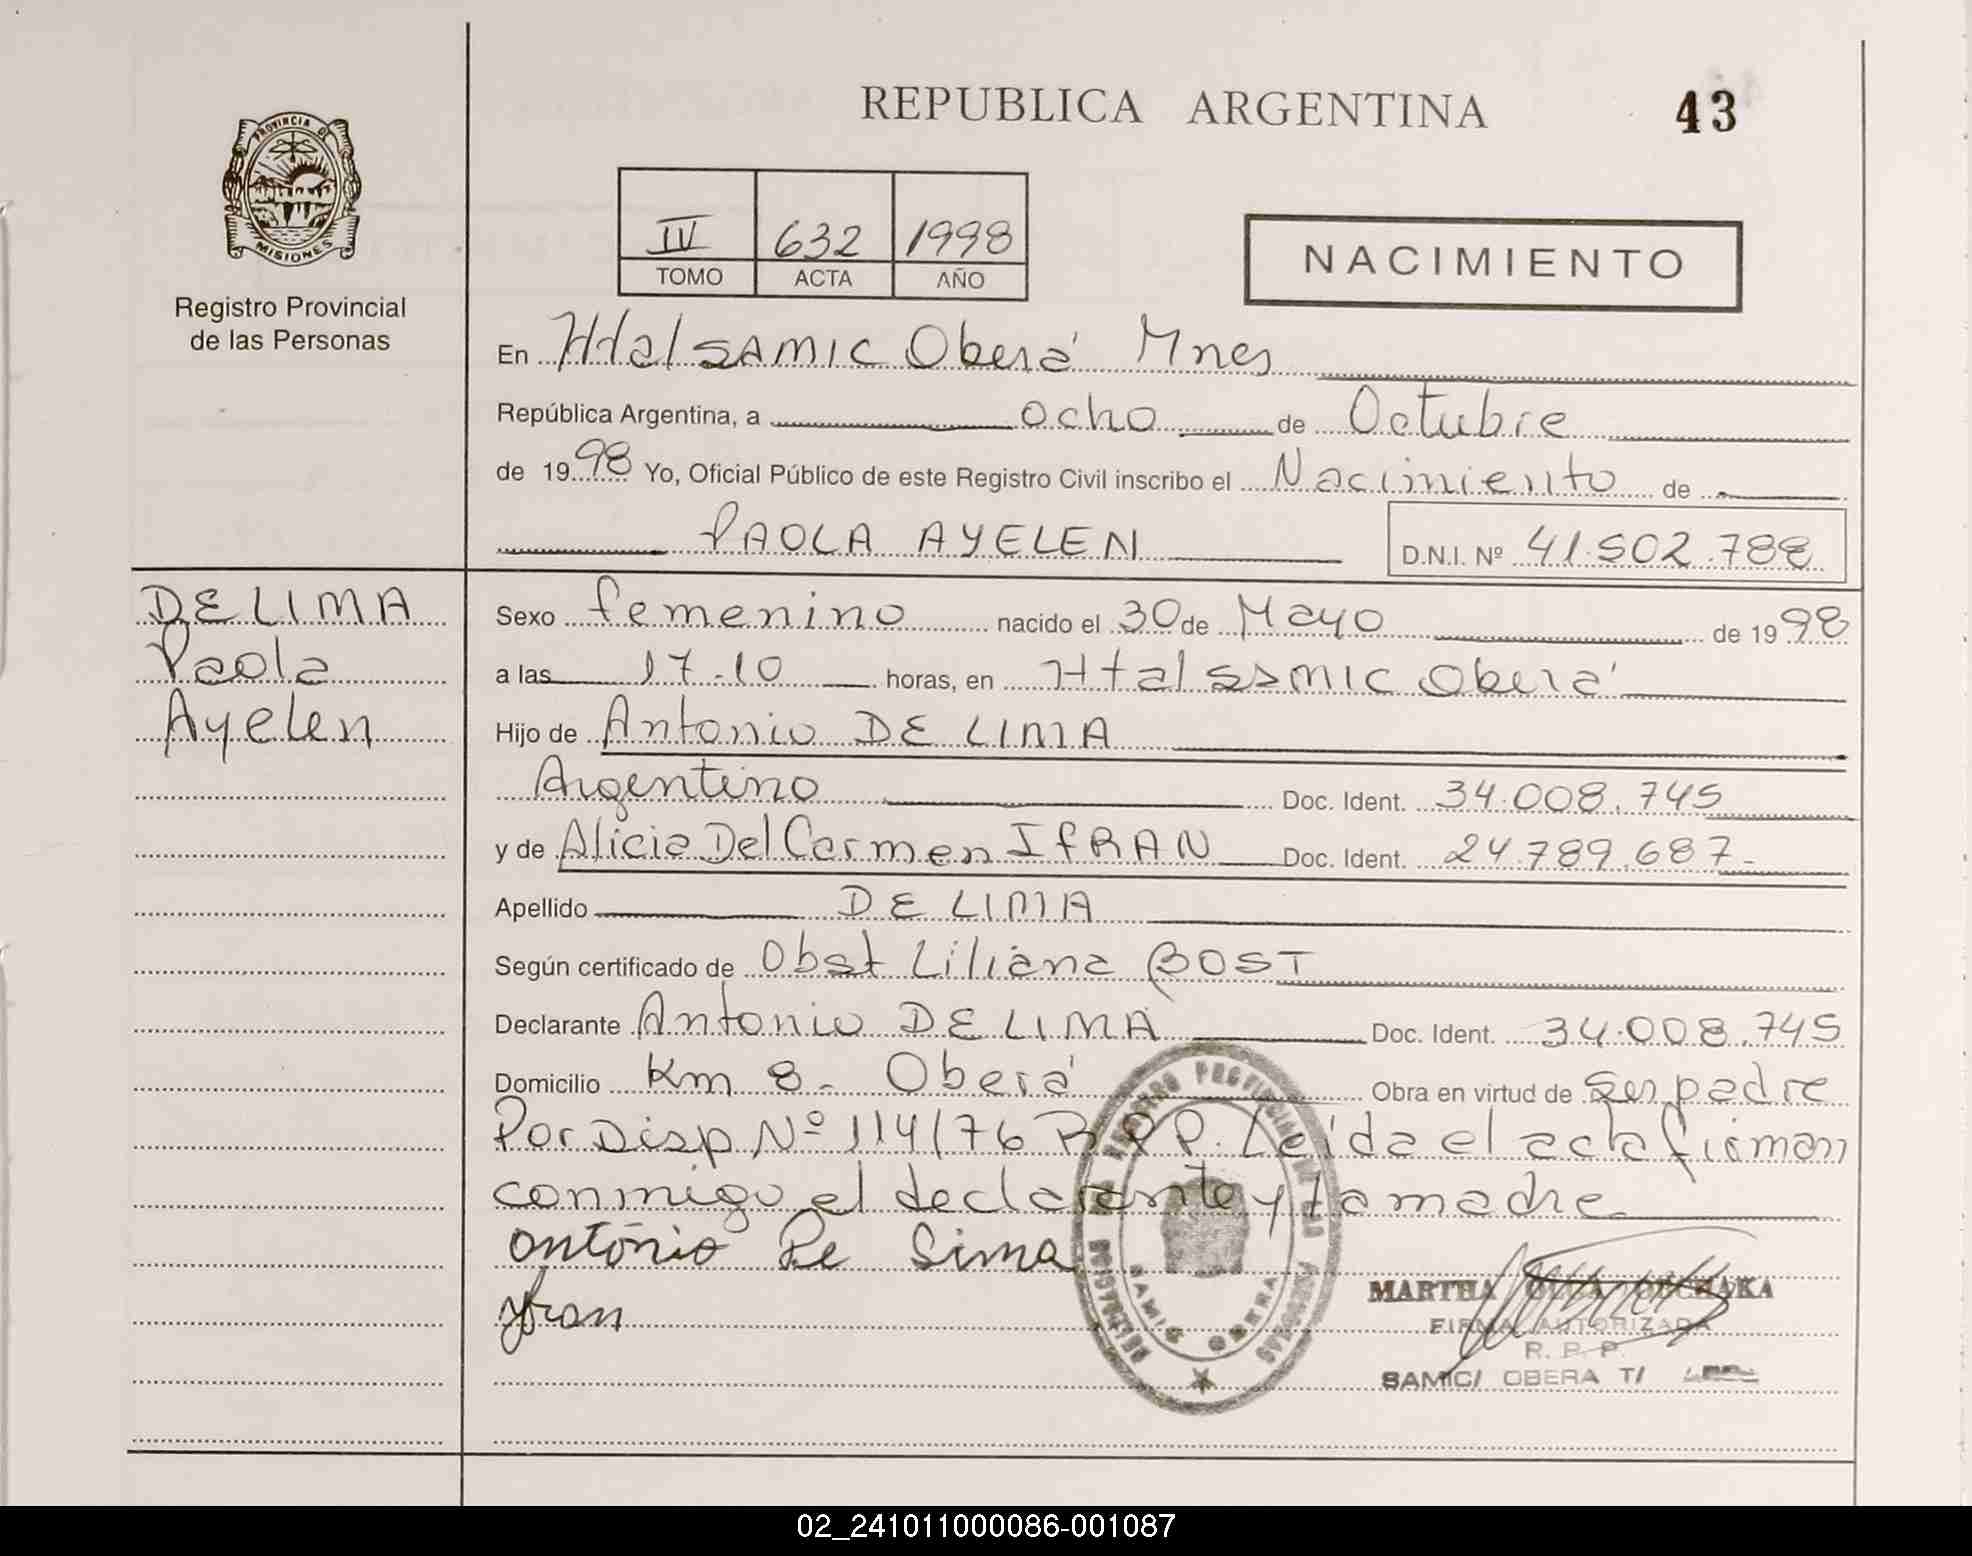 REPUBLICA ARGENTINA
43
PROVINCIA DE
MISIONES
Registro Provincial
de las Personas
IV 632 1998
TOMO ACTA AÑO
NACIMIENTO
En Htal SAMIC Oberá Mnes
República Argentina, a ocho de Octubre
de 1998 Yo, Oficial Público de este Registro Civil inscribo el Nacimiento de
PAOLA AYELEN D.N.I. Nº 41.502.788
DE LIMA
Paola
Ayelen
Sexo femenino nacido el 30 de Mayo de 1998
a las 17-10 horas, en Htal SAMIC Oberá
Hijo de Antonio DE LIMA
Argentino Doc. Ident. 34.008.745
y de Alicia Del Carmen IFRAN Doc. Ident. 24.789.687-
Apellido DE LIMA
Según certificado de Obst Liliana BOST
Declarante Antonio DE LIMA Doc. Ident. 34.008.745
Domicilio Km 8- Oberá Obra en virtud de Ser padre
Por Disp Nº 114/76 R.P.P. Leída el acta firman
conmigo el declarante y la madre
antónio De Lima
Ifran
REGISTRO PROVINCIAL DE LAS PERSONAS
SAMIC OBERA
MARTHA OLGA
FIRMA AUTORIZADA
R. P. P.
SAMIC/ OBERA T/
02_241011000086-001087